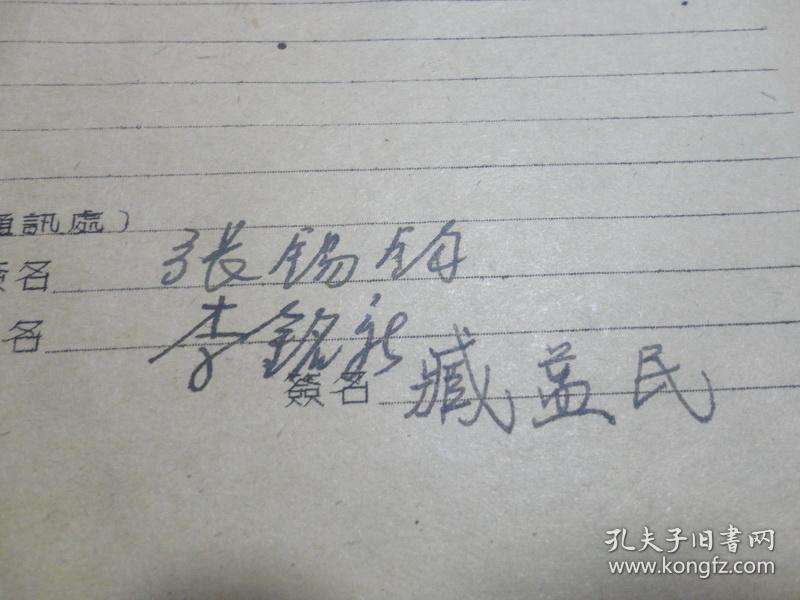 通訊處）
簽名 張錫鈞
名 李銘新
簽名 臧益民
孔夫子旧书网
www.kongfz.com